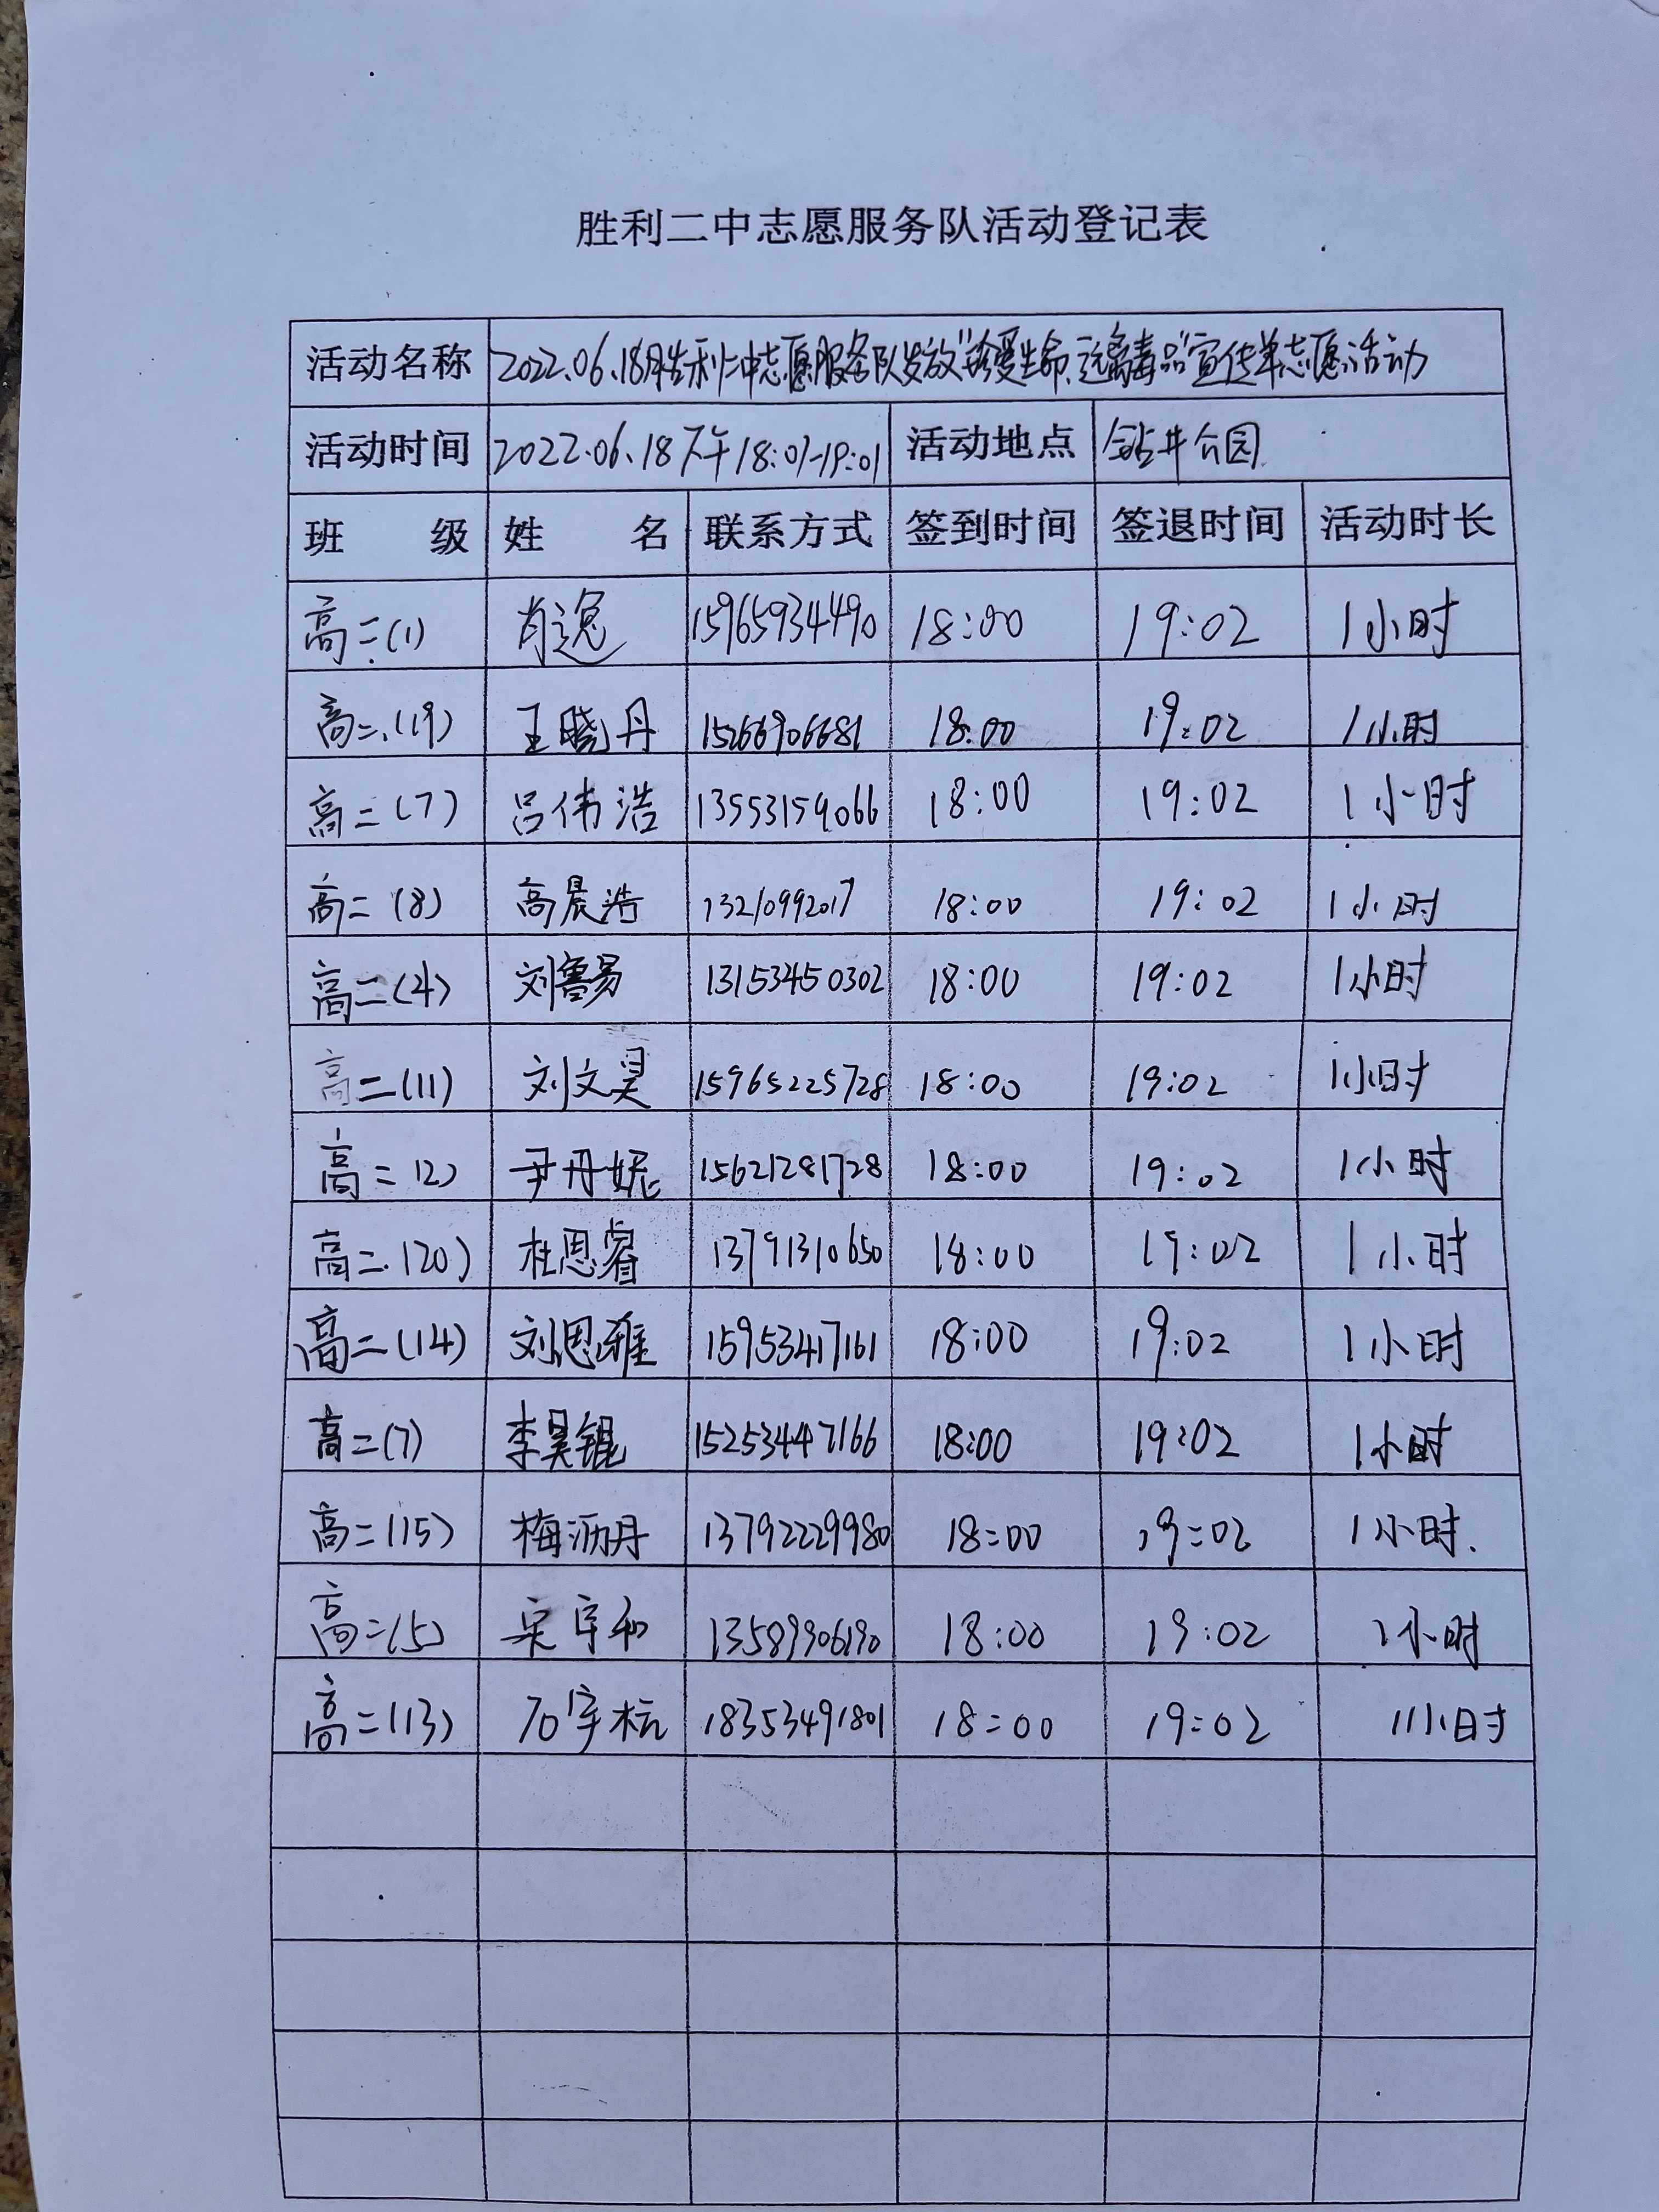 胜利二中志愿服务队活动登记表
活动名称 2022.06.18胜利二中志愿服务队发放“珍爱生命、远离毒品”宣传单志愿活动
活动时间 2022.06.18下午18:01-19:01 活动地点 钻井公园
班 级 姓 名 联系方式 签到时间 签退时间 活动时长
高二(1) 肖逸 15965934490 18:00 19:02 1小时
高二(19) 王晓丹 15266906681 18:00 19:02 1小时
高二(7) 吕伟浩 13553159066 18:00 19:02 1小时
高二(8) 高晨浩 13210992017 18:00 19:02 1小时
高二(4) 刘鲁易 13153450302 18:00 19:02 1小时
高二(11) 刘文昊 15965225728 18:00 19:02 1小时
高二(2) 尹丹妮 15621281728 18:00 19:02 1小时
高二(20) 杜思睿 13791310650 18:00 19:02 1小时
高二(14) 刘恩雅 15953417161 18:00 19:02 1小时
高二(7) 李昊锟 15253447166 18:00 19:02 1小时
高二(15) 梅沥丹 13792229980 18:00 19:02 1小时
高二(5) 宇和 13589906190 18:00 19:02 1小时
高二(13) 石宇杭 18353491801 18:00 19:02 1小时